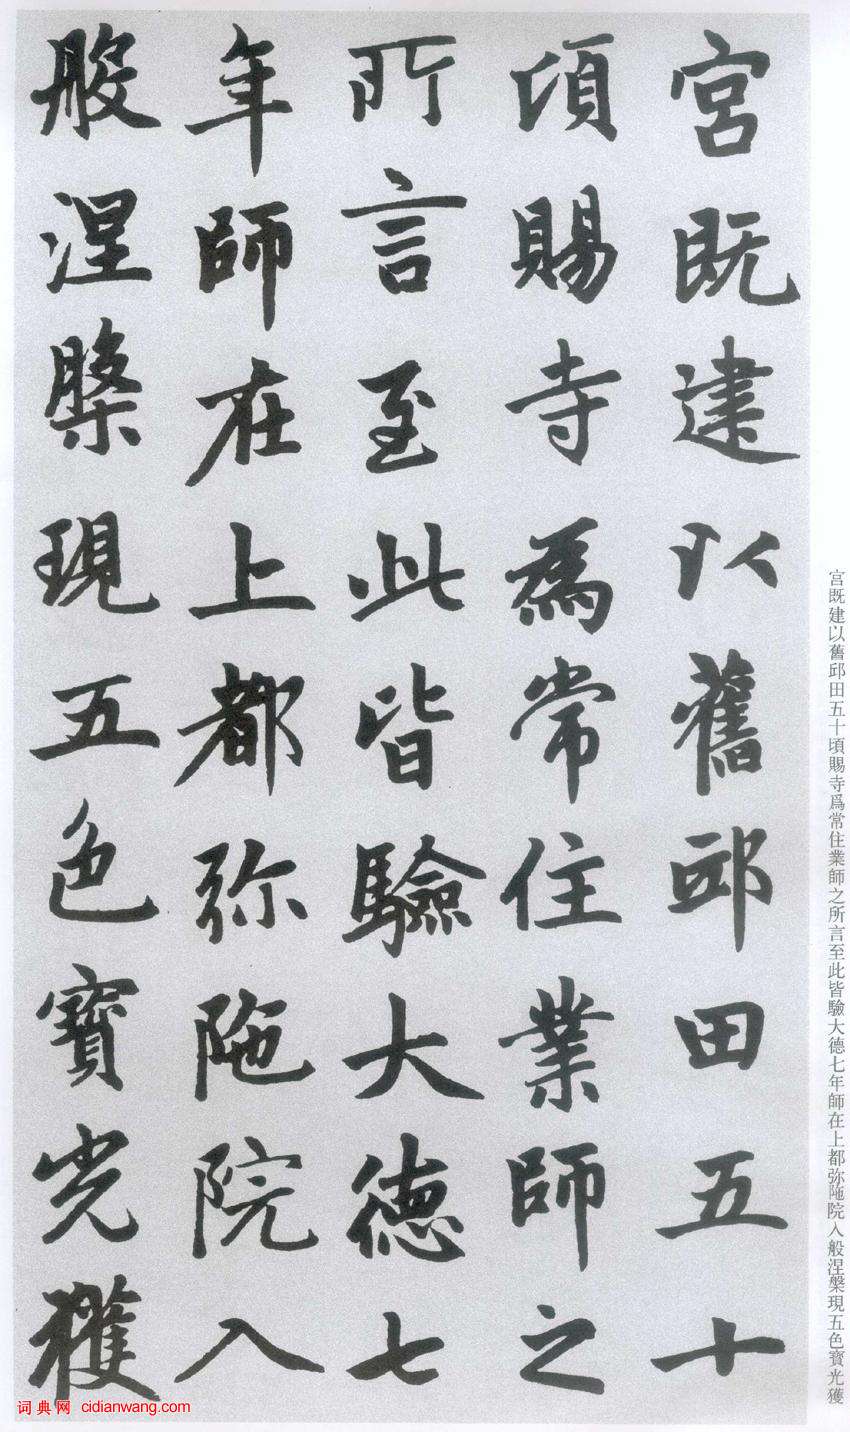 宮既建以舊邱田五十
頃賜寺為常住業師之
所言至此皆驗大德七
年師在上都弥陁院入
般涅槃現五色寶光獲
宮既建以舊邱田五十頃賜寺爲常住業師之所言至此皆驗大德七年師在上都弥陁院入般涅槃現五色寶光獲
词典网 cidianwang.com